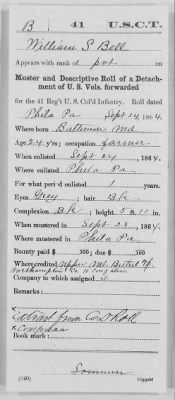 B 41 U.S.C.T.
William S Bell
Appears with rank of pvt. on
Muster and Descriptive Roll of a Detachment of U. S. Vols. forwarded
for the 41 Reg't U. S. Col'd Infantry. Roll dated
Phila Pa Sept 24, 1864.
Where born Baltimore Md
Age 24 y'rs; occupation farmer
When enlisted Sept 24, 1864.
Where enlisted Phila Pa
For what period enlisted 1 years.
Eyes Grey; hair Bk
Complexion Bk; height 5 ft. 10 in.
When mustered in Sept 23, 1864.
Where mustered in Phila Pa
Bounty paid $ 100; due $ 100
Where credited Upper Mt. Bethel Tp.
Northampton Co
Company to which assigned
Remarks:
Extract from Co D Roll
Book mark:
(440) Copyist